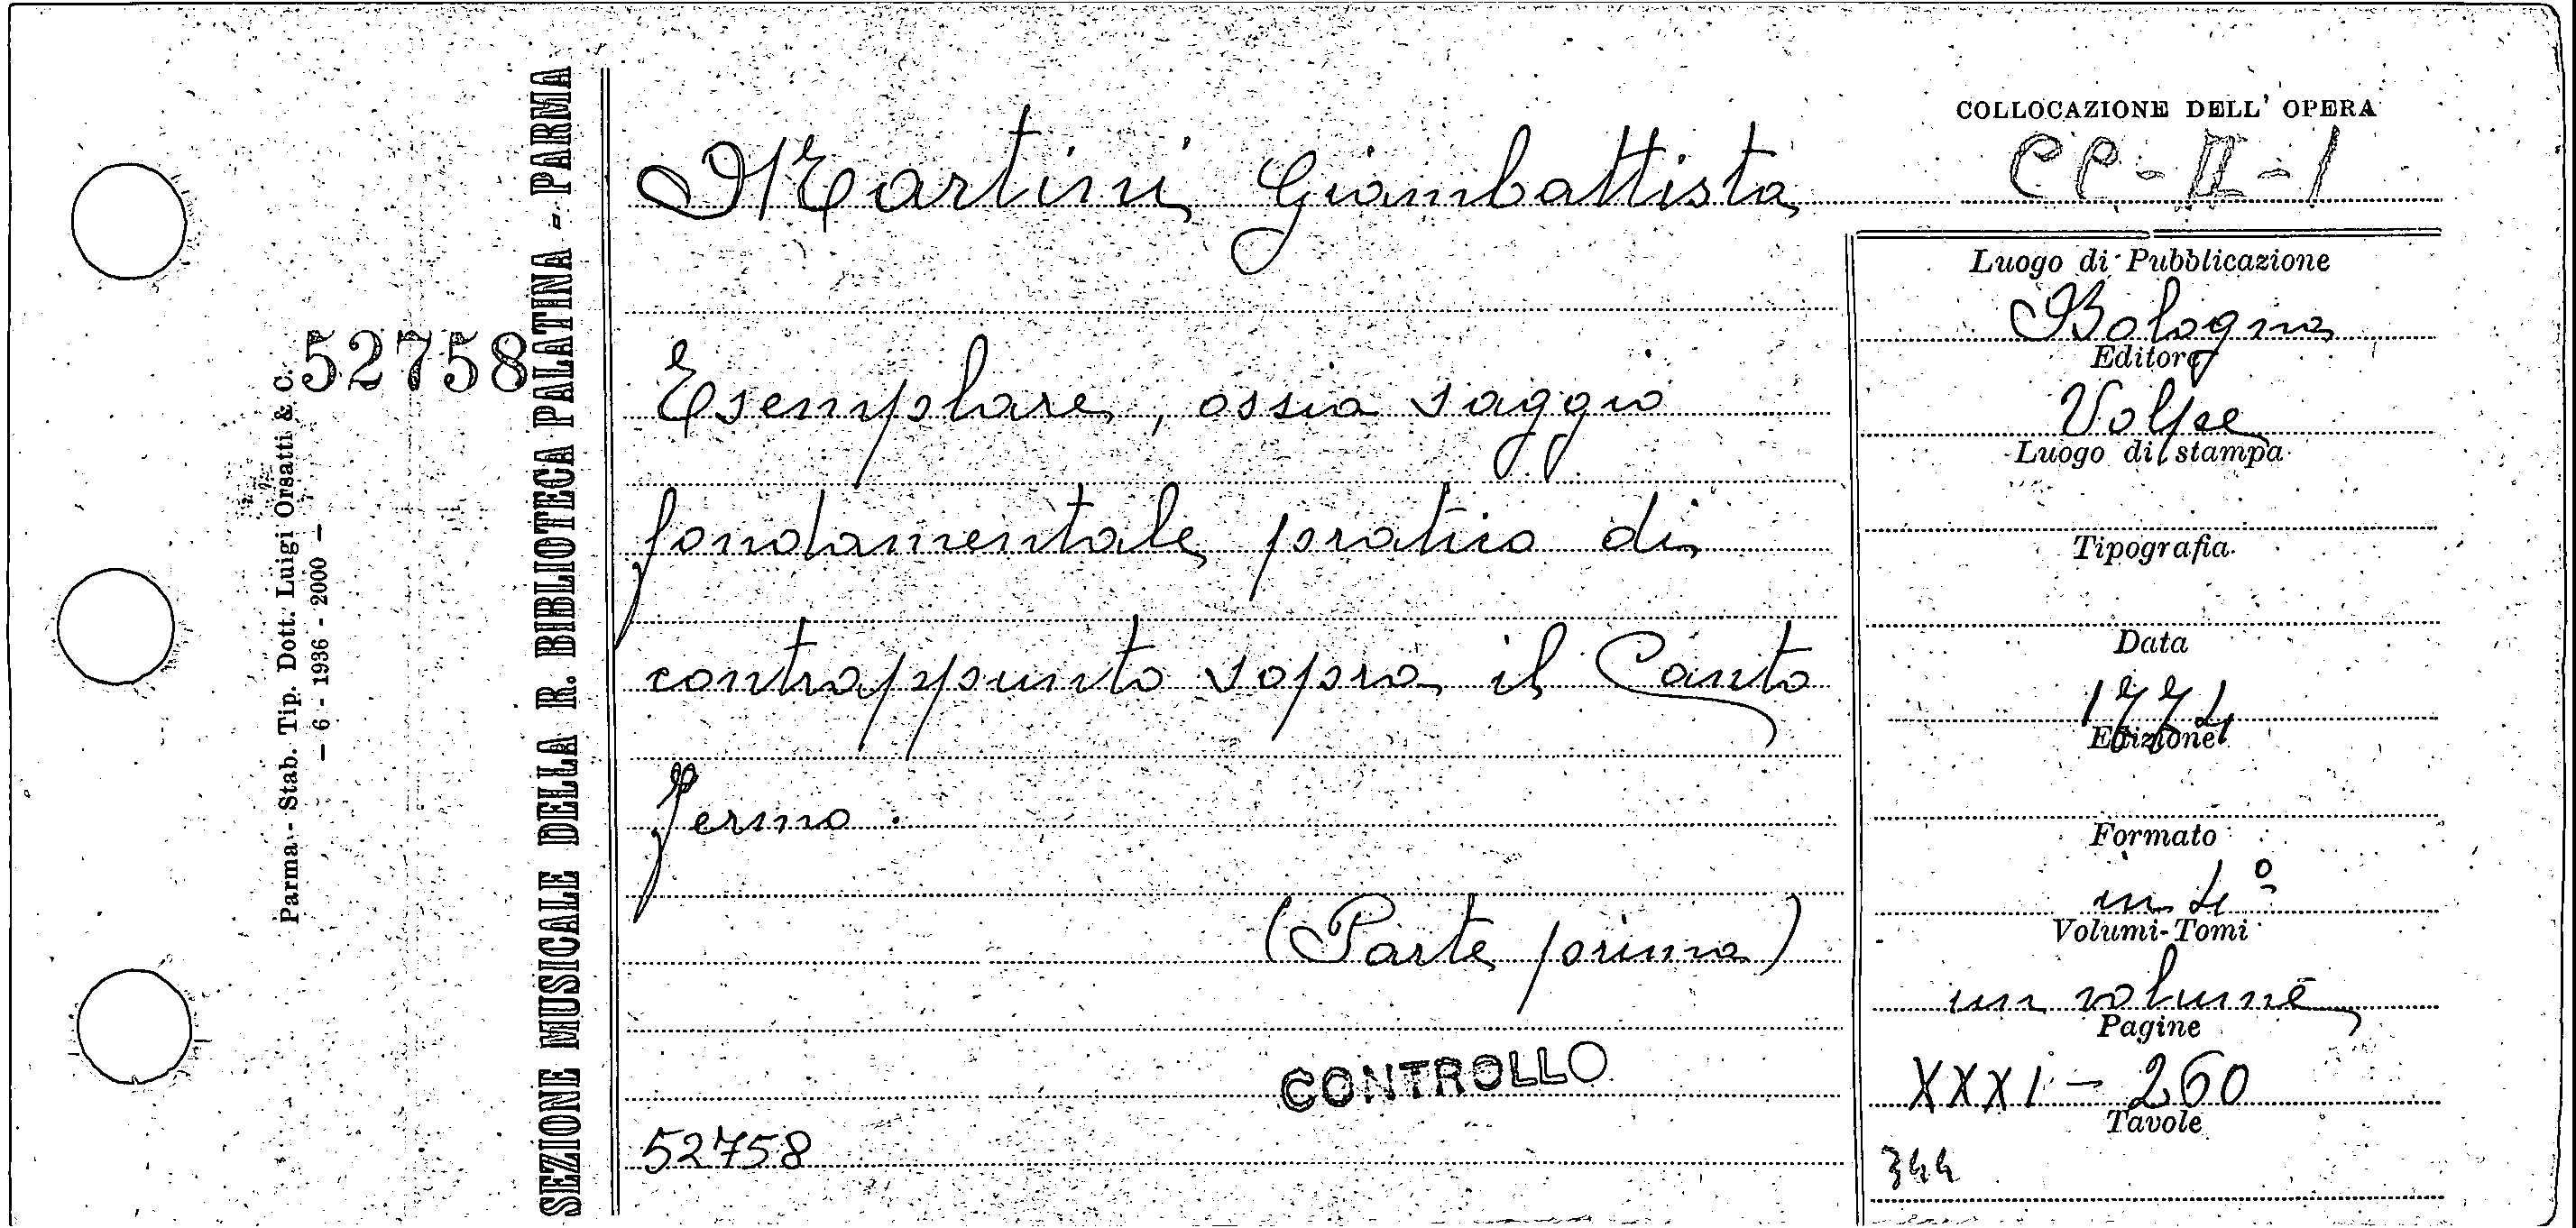 SEZIONE MUSICALE DELLA R. BIBLIOTECA PALATINA - PARMA
Parma - Stab. Tip. Dott. Luigi Orsatti & C.
- 6 - 1936 - 2000 -
52758
Martini Giambattista
Esemplare, ossia saggio
fondamentale pratico di
contrappunto sopra il Canto
fermo.
(Parte prima)
CONTROLLO
52758
COLLOCAZIONE DELL' OPERA
CC-II-1
Luogo di Pubblicazione
Bologna
Editore
Volpe
Luogo di stampa
Tipografia
Data
1774
Edizione
Formato
in 4º
Volumi-Tomi
un volume
Pagine
XXXI - 260
Tavole
344